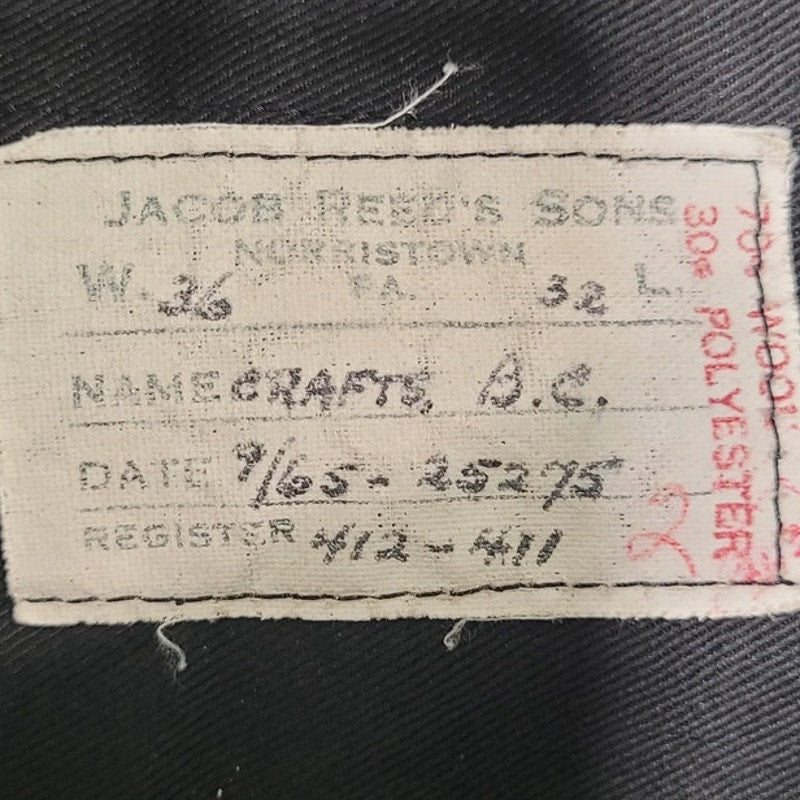 JACOB REED'S SONS
NORRISTOWN
PA.
W. 36 32 L.
NAME CRAFTS, B.C.
DATE 9/65 - 25275
REGISTER 412 - 411
70% WOOL
30% POLYESTER